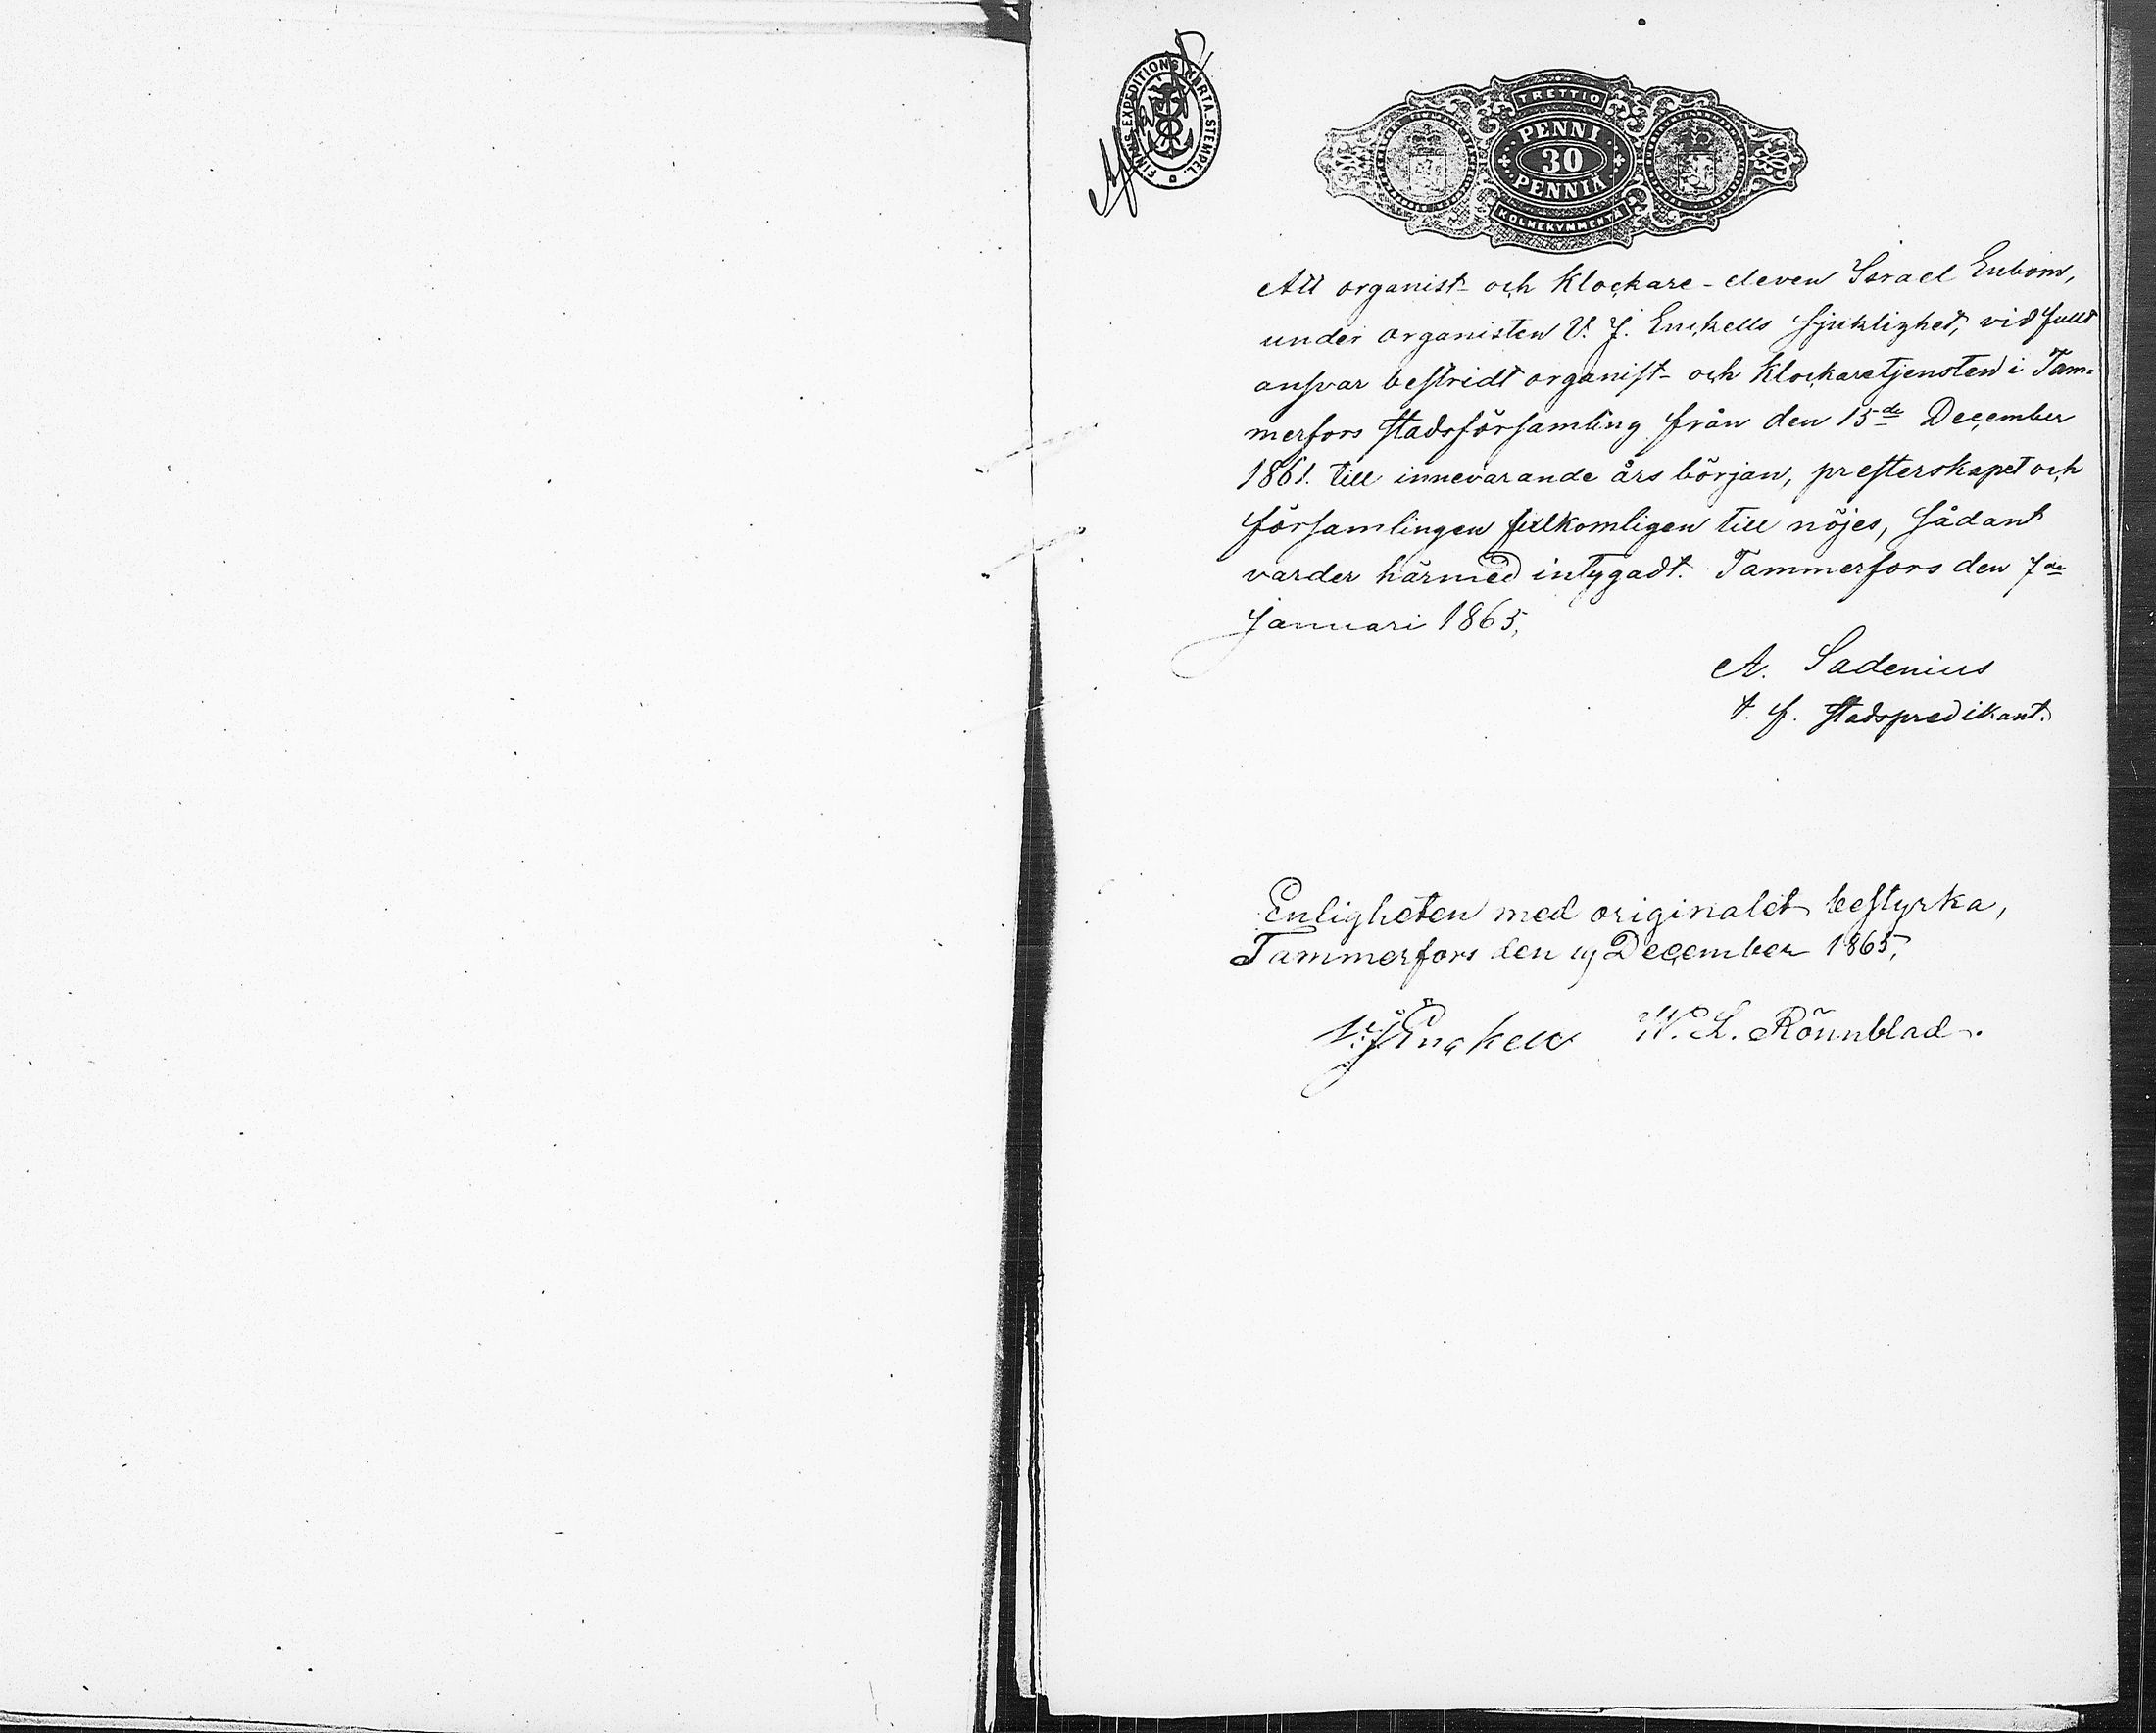 FINSK EXPEDITIONS CHARTA STEMPEL.
TRETTIO
PENNI
30
PENNIÄ
KOLMEKYMMENTÄ
Att organist- och klockare-eleven Israel Enbom,
under organisten V. J. Enckells sjuklighet, vid fullt
ansvar bestridt organist- och klockaretjensten i Tam-
merfors stadsförsamling från den 15de December
1861. till innevarande års början, presterskapet och
församlingen fullkomligen till nöjes, sådant
varder härmed intygadt. Tammerfors den 7de
Januari 1865,
A. Sadenius
t. f. stadspredikant.
Enligheten med originalet bestyrka,
Tammerfors den 19 December 1865,
V. J. Enckell W. L. Rönnblad.